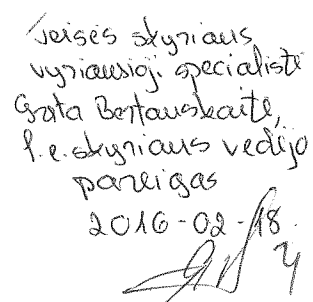 Teisės skyriaus
vyriausioji specialistė
Greta Bertauskaitė,
l. e. skyriaus vedėjo
pareigas
2016-02-18.